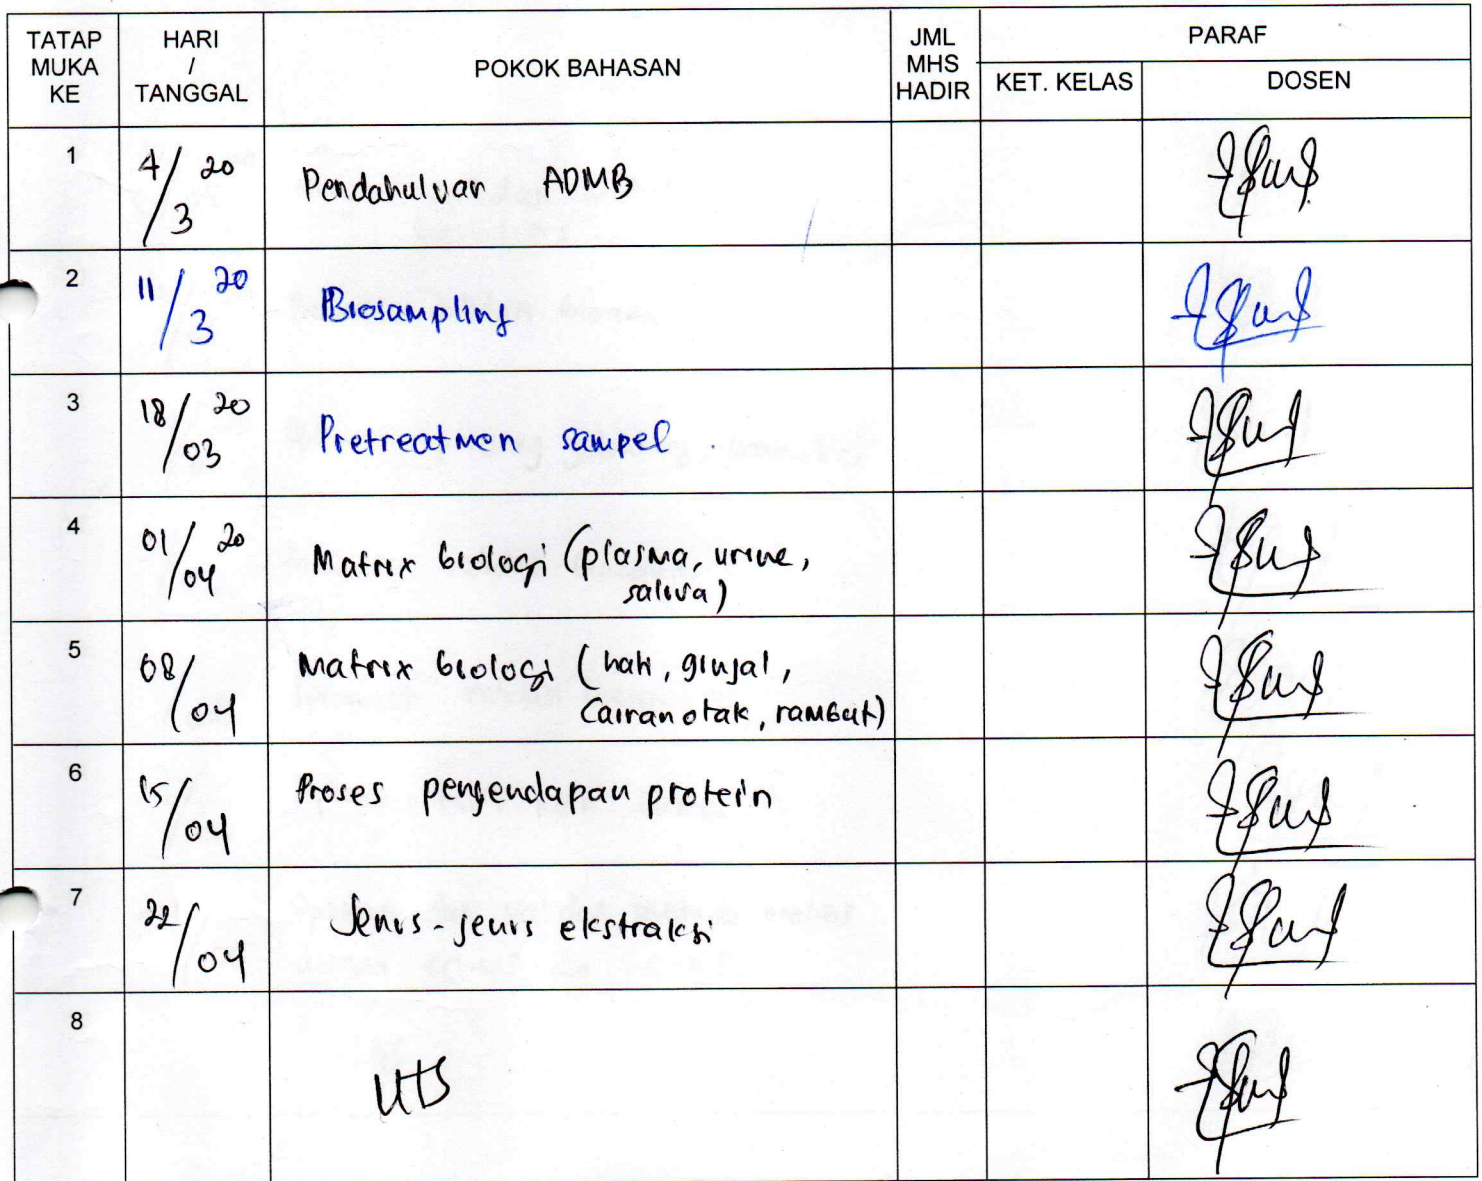 TATAP MUKA KE
HARI / TANGGAL
POKOK BAHASAN
JML MHS HADIR
PARAF
KET. KELAS
DOSEN
1
4/3 20
Pendahuluan ADMB
2
11/3 20
Biosampling
3
18/03 20
Pretreatmen sampel
4
01/04 20
Matrix biologi (plasma, urine,
saliva)
5
08/04
Matrix biologi (hati, ginjal,
Cairan otak, rambut)
6
15/04
Proses pengendapan protein
7
22/04
Jenis-jenis ekstraksi
8
UTS